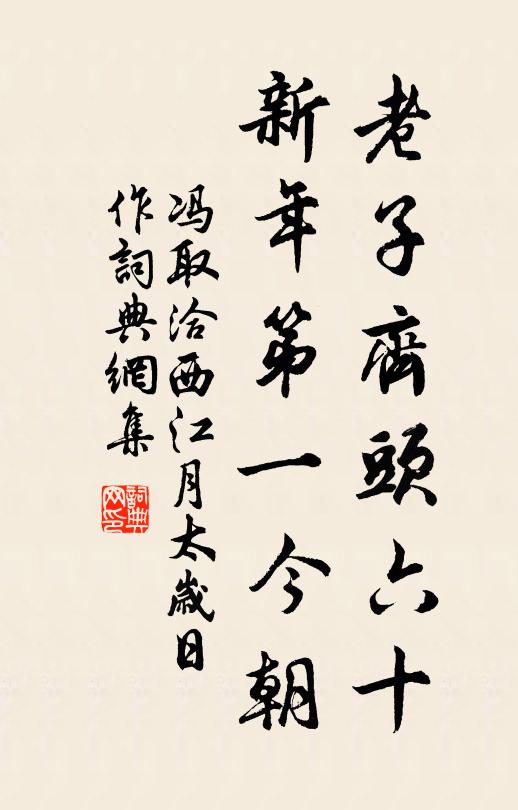 老子齊頭六十
新年第一今朝
冯取洽西江月太歲日
作詞典網集
詞典
网印